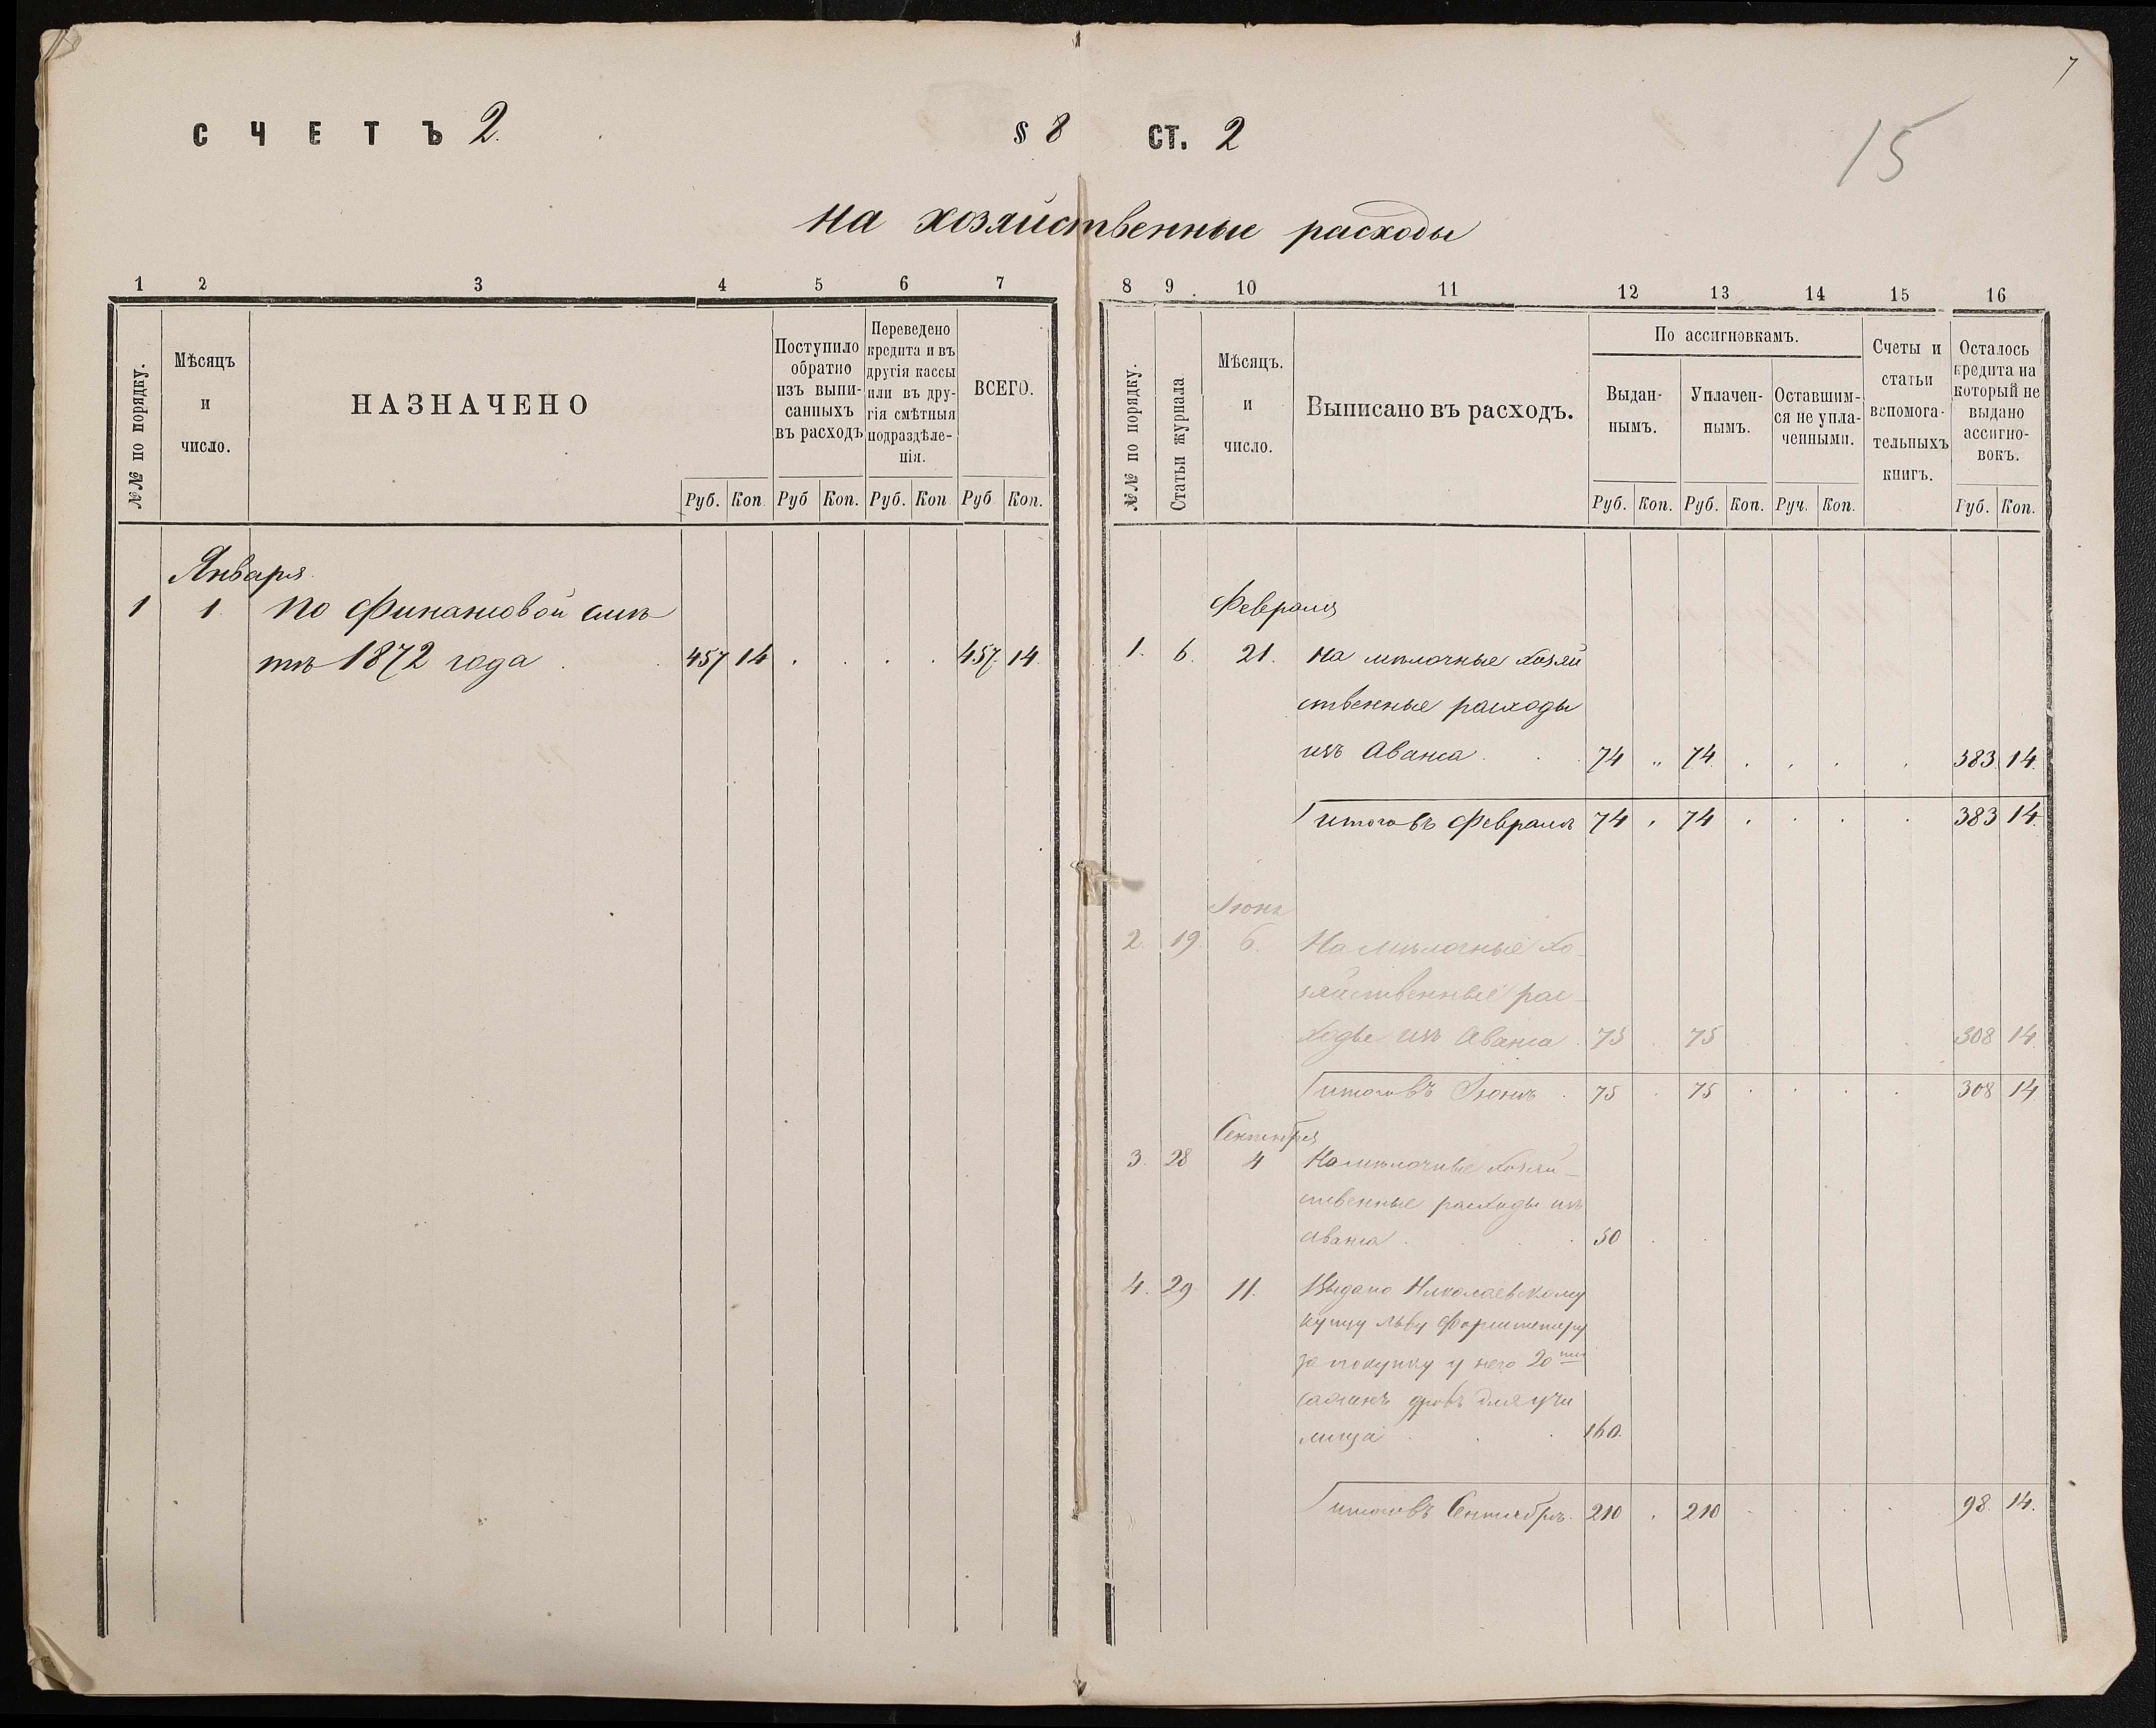 7
СЧЕТЪ 2. § 8 СТ. 2
15
на хозяйственные расходы
1 2 3 4 5 6 7
№№ по порядку.
Мѣсяцъ
и
число.
НАЗНАЧЕНО
Поступило
обратно
изъ выпи-
санныхъ
въ расходъ
Переведено
кредита и въ
другія кассы
или въ дру-
гія смѣтныя
подраздѣле-
нія.
ВСЕГО.
Руб. Коп. Руб Коп. Руб. Коп Руб Коп.
Января
1 1. По финансовой смѣ-
тѣ 1872 года . . 457 14 . . . . 457. 14.
8 9. 10 11 12 13 14 15 16
№№ по порядку.
Статьи журнала
Мѣсяцъ.
и
число.
Выписано въ расходъ.
По ассигновкамъ.
Выдан-
нымъ.
Уплачен-
нымъ.
Оставшим-
ся не упла-
ченнымп.
Счеты и
статьи
вспомога-
тельныхъ
книгъ.
Осталось
кредита на
который не
выдано
ассигно-
вокъ.
Руб. Коп. Руб. Коп. Руч. Коп. Руб. Коп.
Февраля
1. 6. 21. На мѣлочные хозяй
ственные расходы
изъ Аванса . . . 74 „ 74. . . . . 383. 14.
итого въ Февралѣ 74 . 74 . . . . 383 14.
Іюня
2. 19. 6. На мѣлочные хо-
зяйственные рас-
ходы изъ Аванса . 75 . 75 308 14.
итого въ Іюнѣ . 75 . 75 . . . . 308 14
Сентября
3. 28 4 На мѣлочные хозяй-
ственные расходы изъ
аванса . . . . 50 . .
4. 29 11. Выдано Николаевскому
купцу Льву
за покупку у него 20ти
сажинъ дровъ для учи
лища . . . 160.
итого въ Сентябрѣ. 210 . 210 . . . . 98. 14.